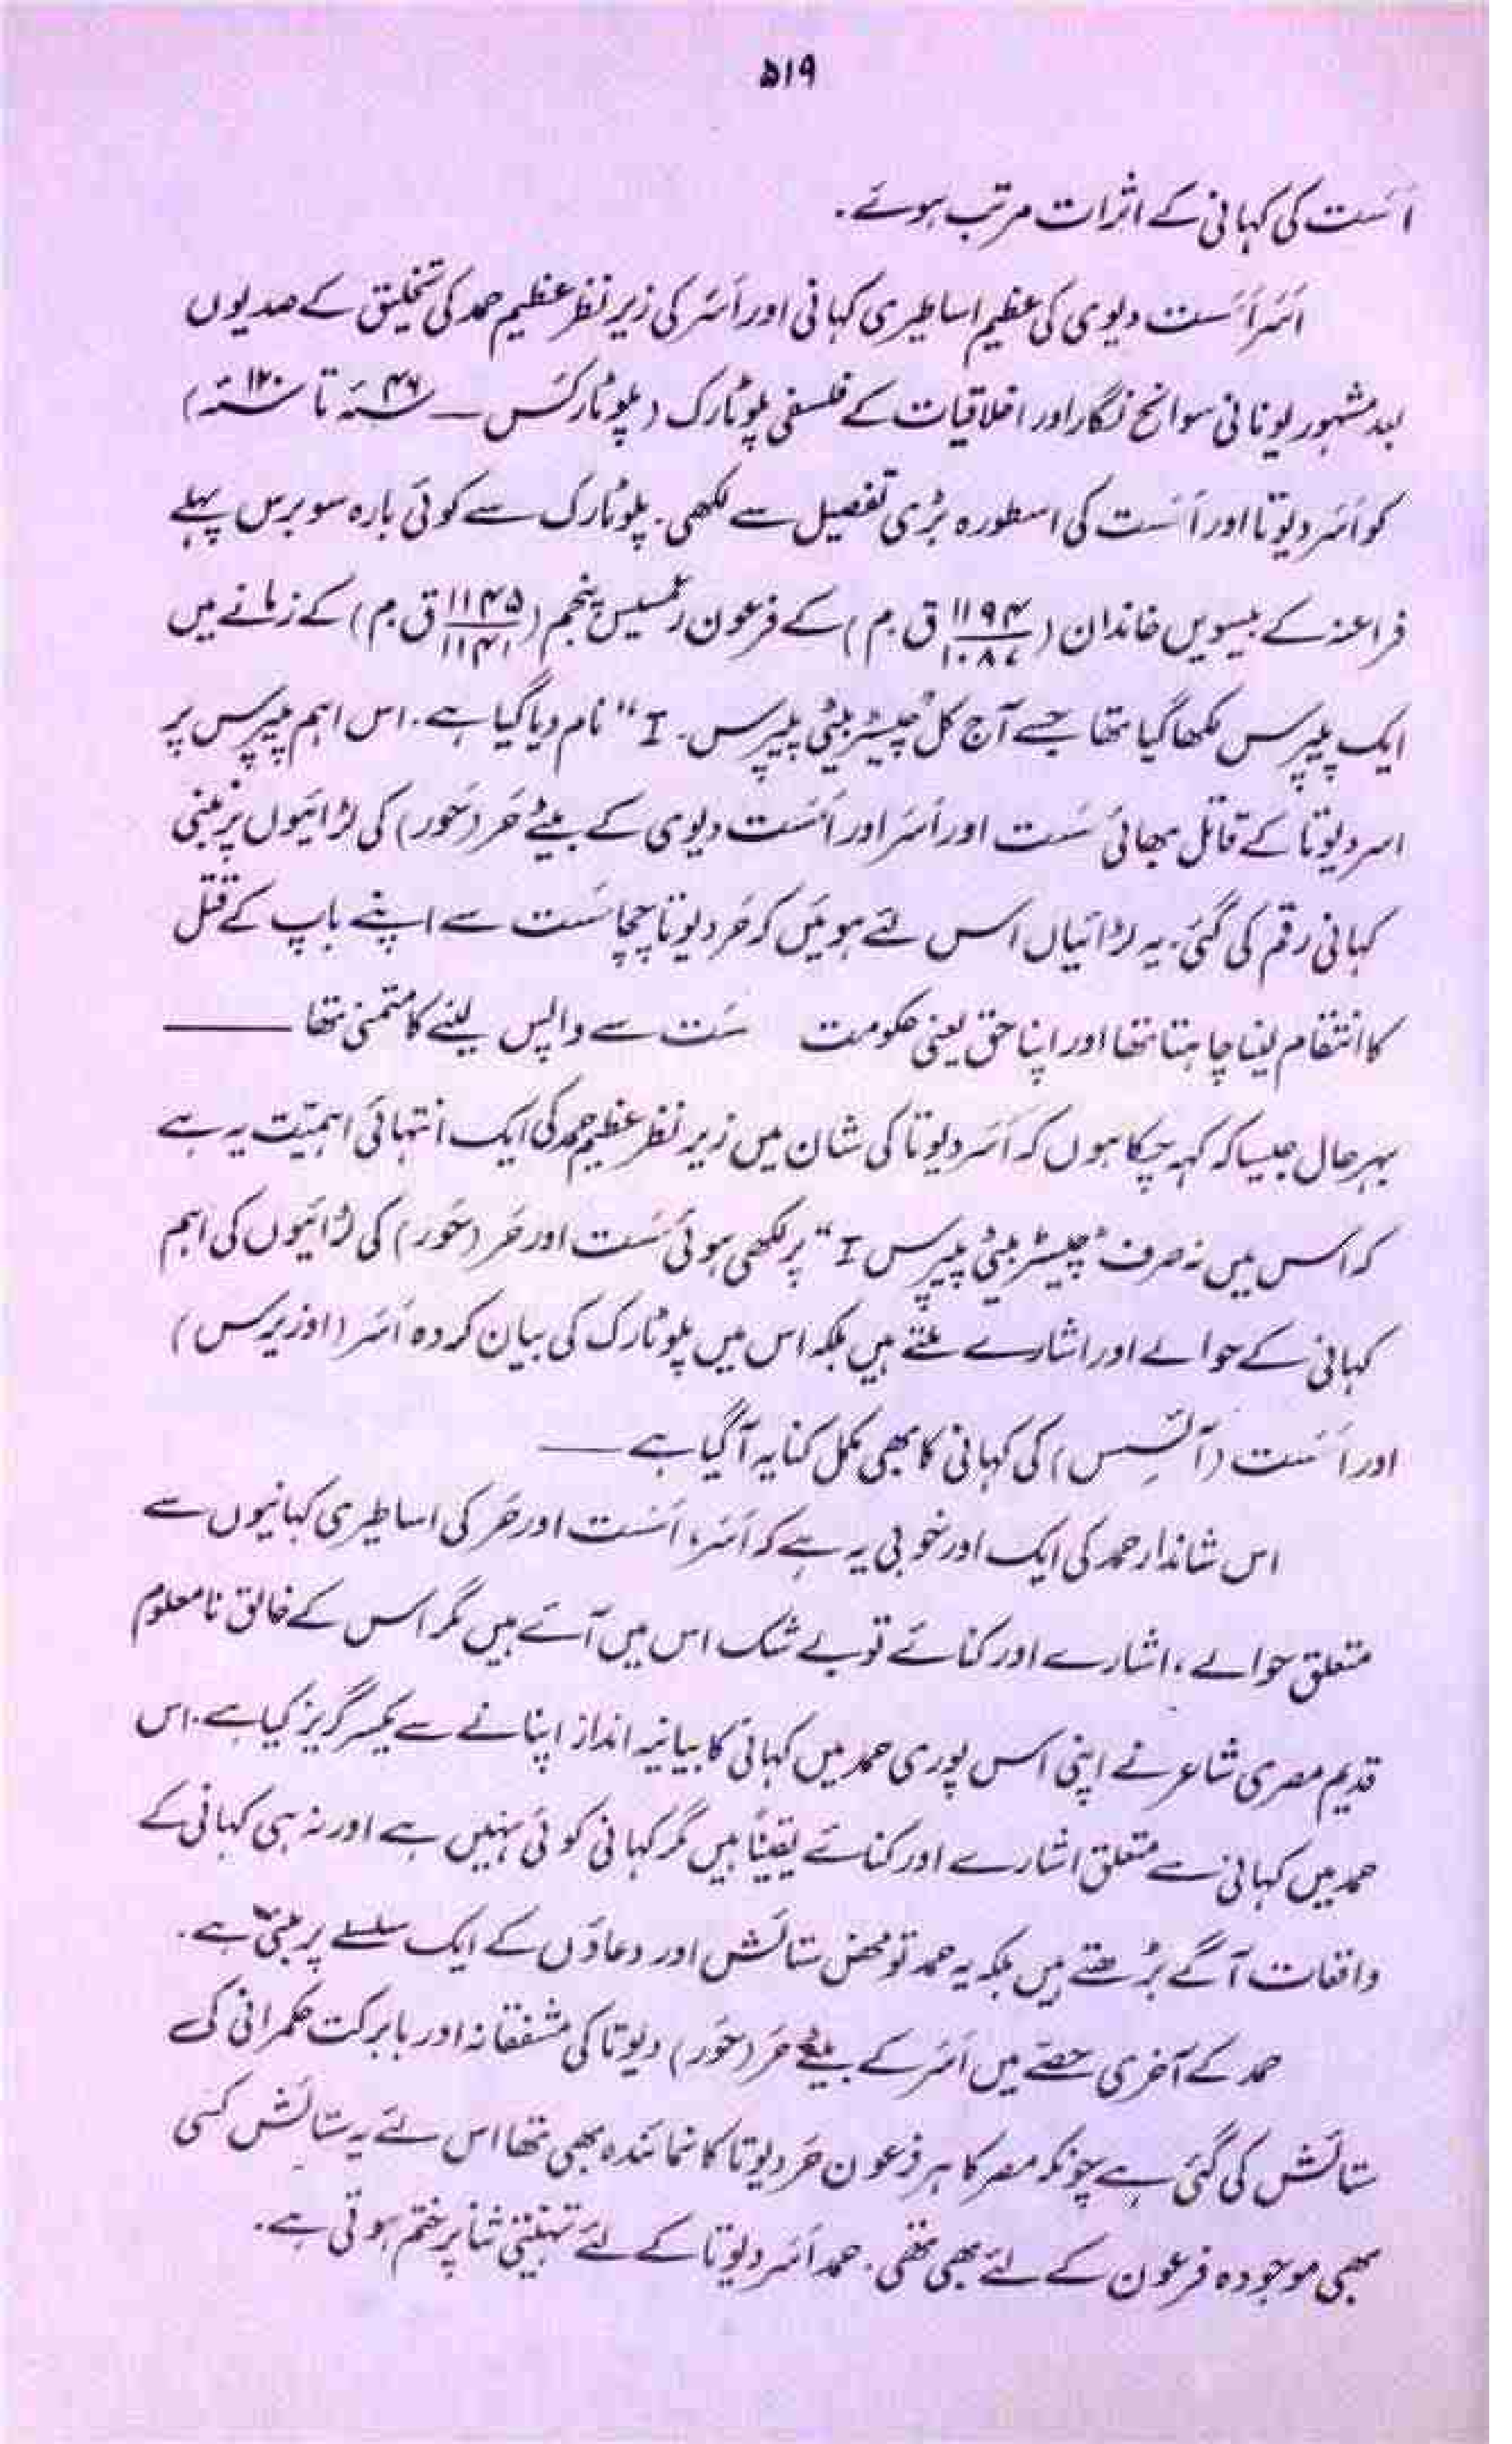 ۵۱۹
اَسَت کی کہانی کے اثرات مرتب ہوئے۔
اَسَر اَسَت دیوی کی عظیم اساطیری کہانی اور اَسَر کی زیر نظر عظیم حمد کی تخلیق کے صدیوں
بعد مشہور یونانی سوانح نگار اور اخلاقیات کے فلسفی پلوٹارک (پلوٹارکس ــ ۴۶ء تا ۱۲۰ء)
کو اَسَر دیوتا اور اَسَت کی اسطورہ بڑی تفصیل سے لکھی۔ پلوٹارک سے کوئی بارہ سو برس پہلے
فراعنہ کے بیسویں خاندان (۱۱۹۴/۱۰۸۷ ق۔م) کے فرعون رعمسیس پنجم (۱۱۴۵/۱۱۴۱ ق۔م) کے زمانے میں
ایک پیپرس لکھا گیا تھا جسے آج کل "چیسٹر بیٹی پیپرس۔ I" نام دیا گیا ہے۔ اس اہم پیپرس پر
اسر دیوتا کے قاتل بھائی سَت اور اَسَر اور اَسَت دیوی کے بیٹے حَر (حَور) کی لڑائیوں پر مبنی
کہانی رقم کی گئی۔ یہ لڑائیاں اس لئے ہوئیں کہ حَر دیوتا چچا سَت سے اپنے باپ کے قتل
کا انتقام لینا چاہتا تھا اور اپنا حق یعنی حکومت سَت سے واپس لینے کا متمنی تھا ــــــ
بہرحال جیسا کہ کہہ چکا ہوں کہ اَسَر دیوتا کی شان میں زیر نظر عظیم حمد کی ایک انتہائی اہمیّت یہ ہے
کہ اس میں نہ صرف "چیسٹر بیٹی پیپرس I" پر لکھی ہوئی سَت اور حَر (حَور) کی لڑائیوں کی اہم
کہانی کے حوالے اور اشارے ملتے ہیں بلکہ اس میں پلوٹارک کی بیان کردہ اَسَر (اوزیرس)
اور اَسَت (آئسِس) کی کہانی کا بھی مکمل کنایہ آ گیا ہے ــــــ
اس شاندار حمد کی ایک اور خوبی یہ ہے کہ اَسَر، اَسَت اور حَر کی اساطیری کہانیوں سے
متعلق حوالے، اشارے اور کنائے تو بے شک اس میں آئے ہیں مگر اس کے خالق نامعلوم
قدیم مصری شاعر نے اپنی اس پوری حمد میں کہانی کا بیانیہ انداز اپنانے سے یکسر گریز کیا ہے۔ اس
حمد میں کہانی سے متعلق اشارے اور کنائے یقیناً ہیں مگر کہانی کوئی نہیں ہے اور نہ ہی کہانی کے
واقعات آگے بڑھتے ہیں بلکہ یہ حمد تو محض ستائش اور دعاؤں کے ایک سلسلے پر مبنی ہے۔
حمد کے آخری حصّے میں اَسَر کے بیٹے حَر (حَور) دیوتا کی مشفقانہ اور بابرکت حکمرانی کی
ستائش کی گئی ہے چونکہ مصر کا ہر فرعون حَر دیوتا کا نمائندہ بھی تھا اس لئے یہ ستائش کسی
بھی موجودہ فرعون کے لئے بھی تھی۔ حمد اَسَر دیوتا کے لئے تہنیتی ثنا پر ختم ہوتی ہے۔